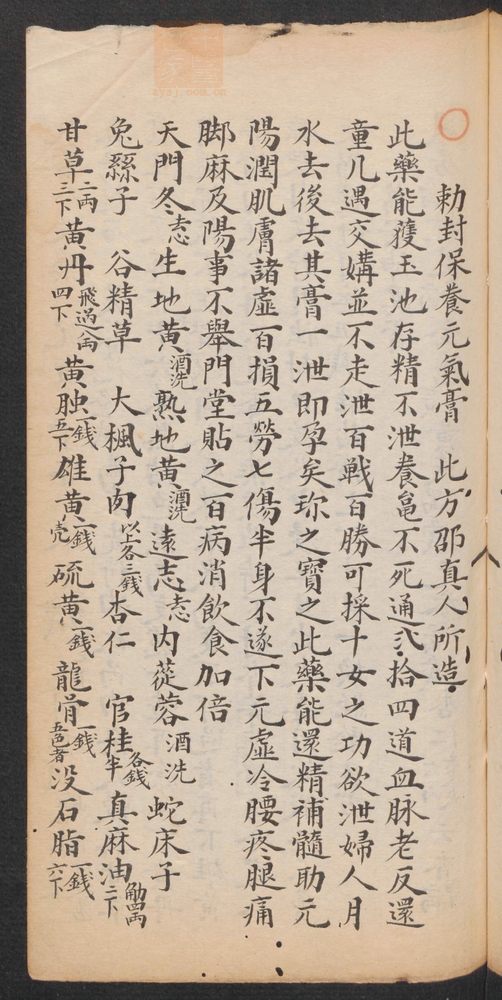 勅封保養元氣膏　此方邵真人所造
此藥能蓡玉池存精不泄養龜不死通弍拾四道血脉老反還
童儿遇交媾並不走泄百戰百勝可採十女之功欲泄婦人月
水去後去其膏一泄即孕矣珎之寶之此藥能還精補髓助元
陽潤肌膚諸虛百損五勞七傷半身不遂下元虛冷腰疼腿痛
脚麻及陽事不舉門堂貼之百病消飲食加倍
天門冬去心 生地黄酒洗 熟地黄酒洗 遠志去心 肉蓯蓉酒洗 蛇床子
兔絲子 谷精草 大楓子肉以上各三錢 杏仁 官桂各半錢 真麻油二下
甘草二兩三下 黄丹飛過八兩四下 黄蝕一錢五下 雄黄一錢 硫黄一錢 龍骨一錢五色者 没石脂一錢六下